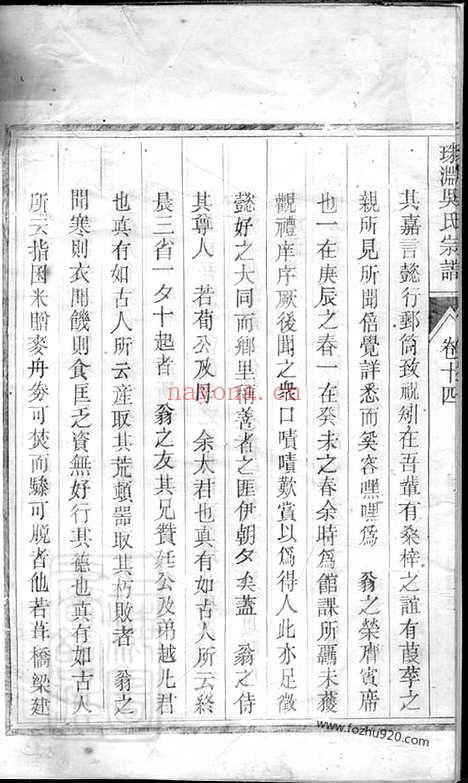 珠淵吳氏宗譜 卷十四
其嘉言懿行郵筒致祝矧在吾輩有桑梓之誼有葭莩之
親所見所聞倍覺詳悉而奚容嘿嘿爲 翁之榮膺賓席
也一在庚辰之春一在癸未之春余時爲館課所羈未獲
觀禮庠序厥後聞之衆口嘖嘖歎賞以爲得人此亦足徵
懿好之大同而鄉里稱善者之匪伊朝夕矣蓋 翁之侍
其尊人 若荀公及母 余太君也真有如古人所云終
晨三省一夕十起者 翁之友其兄贊廷公及弟越凡君
也真有如古人所云産取其荒頓器取其朽敗者 翁之
聞寒則衣聞饑則食匡乏之資無好行其德也真有如古人
所云指囷米贈麥舟劵可焚而驂可脫者他若葺橋梁建
nayona.cn
www.fozhu920.com